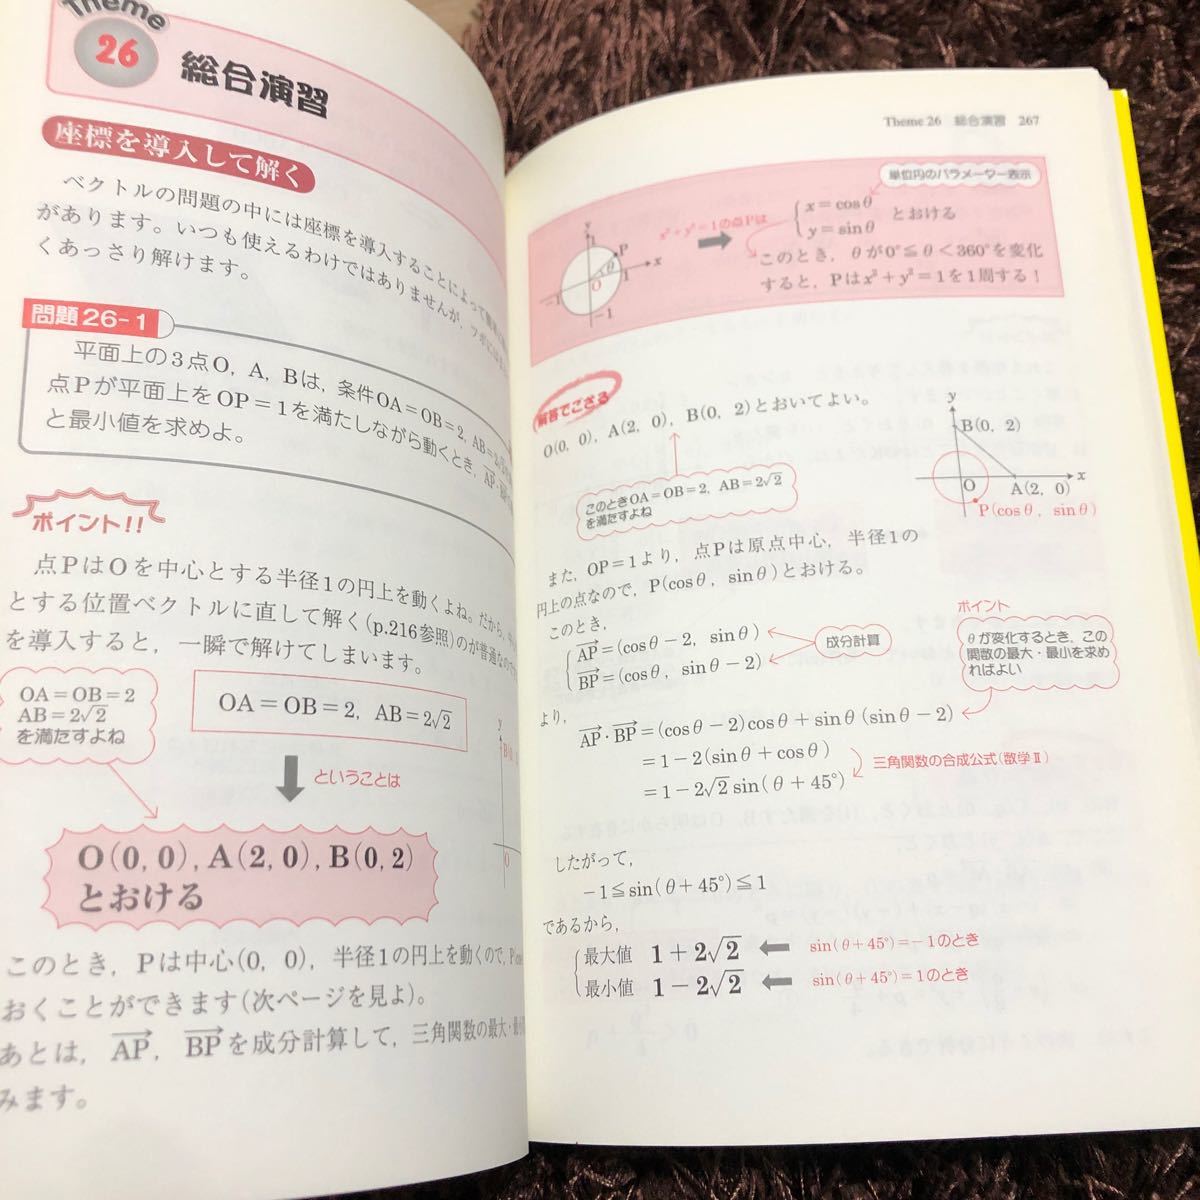 Theme
26
総合演習
座標を導入して解く
ベクトルの問題の中には座標を導入することによって
があります。いつも使えるわけではありませんが、ツボにはま
くあっさり解けます。
問題26-1
平面上の3点O, A, Bは, 条件OA=OB=2, AB=2√2
点Pが平面上をOP=1を満たしながら動くとき, AP・
と最小値を求めよ。
ポイント!!
点PはOを中心とする半径1の円上を動くよね。だから,
とする位置ベクトルに直して解く(p.216参照)のが普通なの
を導入すると, 一瞬で解けてしまいます。
OA=OB=2
AB=2√2
を満たすよね
OA=OB=2, AB=2√2
ということは
y
B(0,
O
O(0, 0), A(2, 0), B(0, 2)
とおける
このとき, Pは中心(0, 0), 半径1の円上を動くので, P
おくことができます(次ページを見よ)。
あとは, AP, BPを成分計算して, 三角関数の最大・最
みます。
Theme 26 総合演習 267
単位円のパラメーター表示
y
1
P
θ
-1
O
1
x
-1
x²+y²=1の点Pは
x=cosθ
y=sinθ
とおける
このとき, θが0°≦θ<360°を変化
すると, Pはx²+y²=1を1周する!
解答でござる
O(0, 0), A(2, 0), B(0, 2)とおいてよい。
このときOA=OB=2, AB=2√2
を満たすよね
y
B(0, 2)
O
x
A(2, 0)
P(cosθ, sinθ)
また, OP=1より, 点Pは原点中心, 半径1の
円上の点なので, P(cosθ, sinθ)とおける。
このとき,
AP=(cosθ-2, sinθ)
BP=(cosθ, sinθ-2)
成分計算
ポイント
θが変化するとき、この
関数の最大・最小を求め
ればよい
より,
AP・BP=(cosθ-2)cosθ+sinθ(sinθ-2)
=1-2(sinθ+cosθ)
=1-2√2 sin(θ+45°)
三角関数の合成公式(数学Ⅱ)
したがって,
-1≦sin(θ+45°)≦1
であるから,
最大値 1+2√2 sin(θ+45°)=-1のとき
最小値 1-2√2 sin(θ+45°)=1のとき